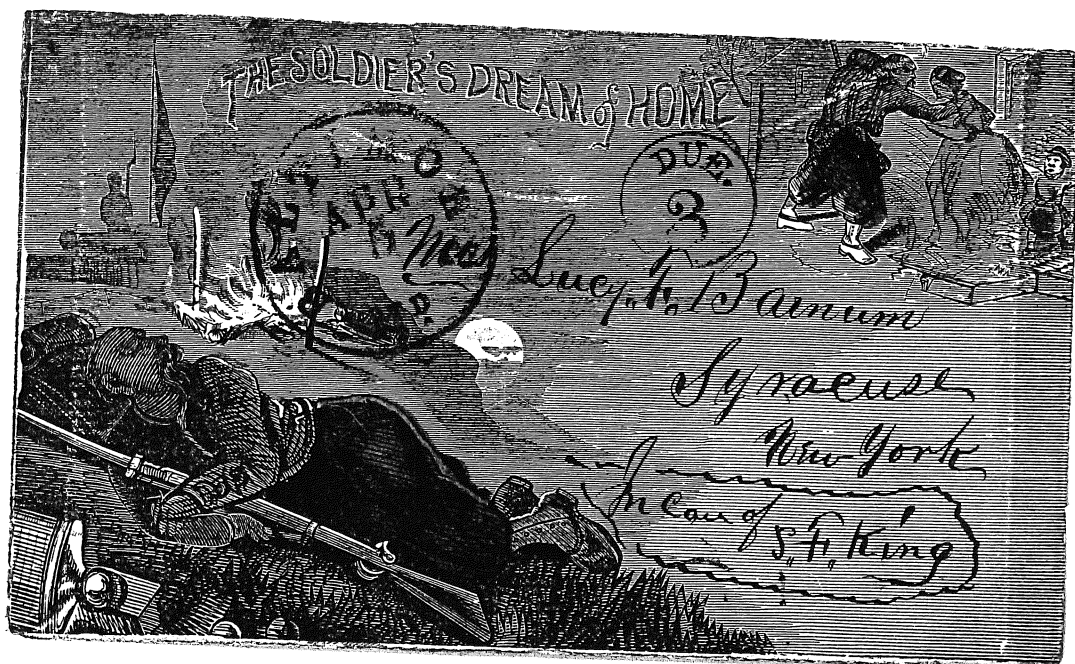 THE SOLDIER'S DREAM of HOME
APR
DUE.
3
Mrs Lucy. F. Barnum
Syracuse
New York
In Care of
S. F. King